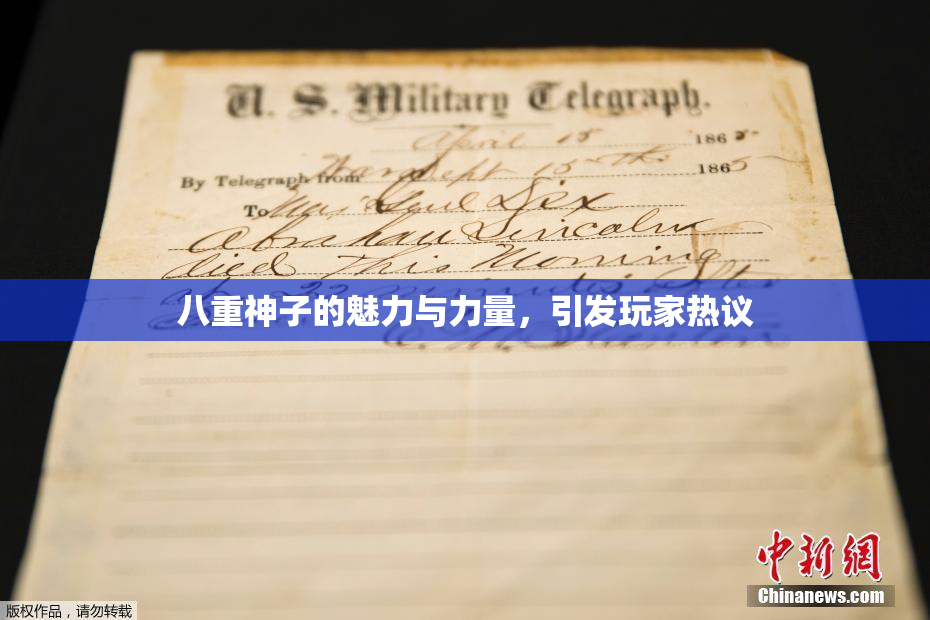 U. S. Military Telegraph.
April 15 1865
By Telegraph from War Dept 15th 1865
To Maj Genl Dix
Abraham Lincoln
died This Morning
at 22 minutes after
八重神子的魅力与力量，引发玩家热议
中新网
Chinanews.com
版权作品，请勿转载